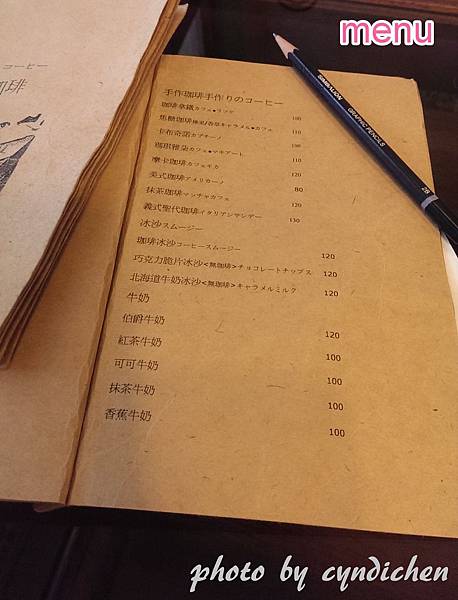 menu
コーヒー
珈琲
手作珈琲手作りのコーヒー
珈琲拿鐵カフェ●ラッテ 100
焦糖珈琲榛果/香草キャラメル●カフェ 110
卡布奇諾カプチーノ 100
瑪琪雅朵カフェ●マキアート 110
摩卡珈琲カフェモカ 110
美式珈琲アメリカーノ 80
抹茶珈琲マッチャカフェ 120
義式聖代珈琲イタリアンサンデー 130
冰沙スムージー
珈琲冰沙コーヒースムージー 120
巧克力脆片冰沙<無珈琲>チョコレートチップス 120
北海道牛奶冰沙<無珈琲>キャラメルミルク 120
牛奶
伯爵牛奶 120
紅茶牛奶 100
可可牛奶 100
抹茶牛奶 100
香蕉牛奶 100
GRAPHIC PENCILS 2B
photo by cyndichen